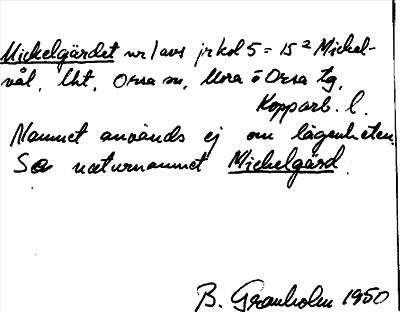 Mickelgärdet nr 1 avs jrkol 5 = 15² Mickel-
vål, lht, Orsa sn, Mora o Orsa tg,
Kopparb. l.
Namnet används ej om lägenheten.
Se naturnamnet Mickelgärd.
B. Granholm 1950